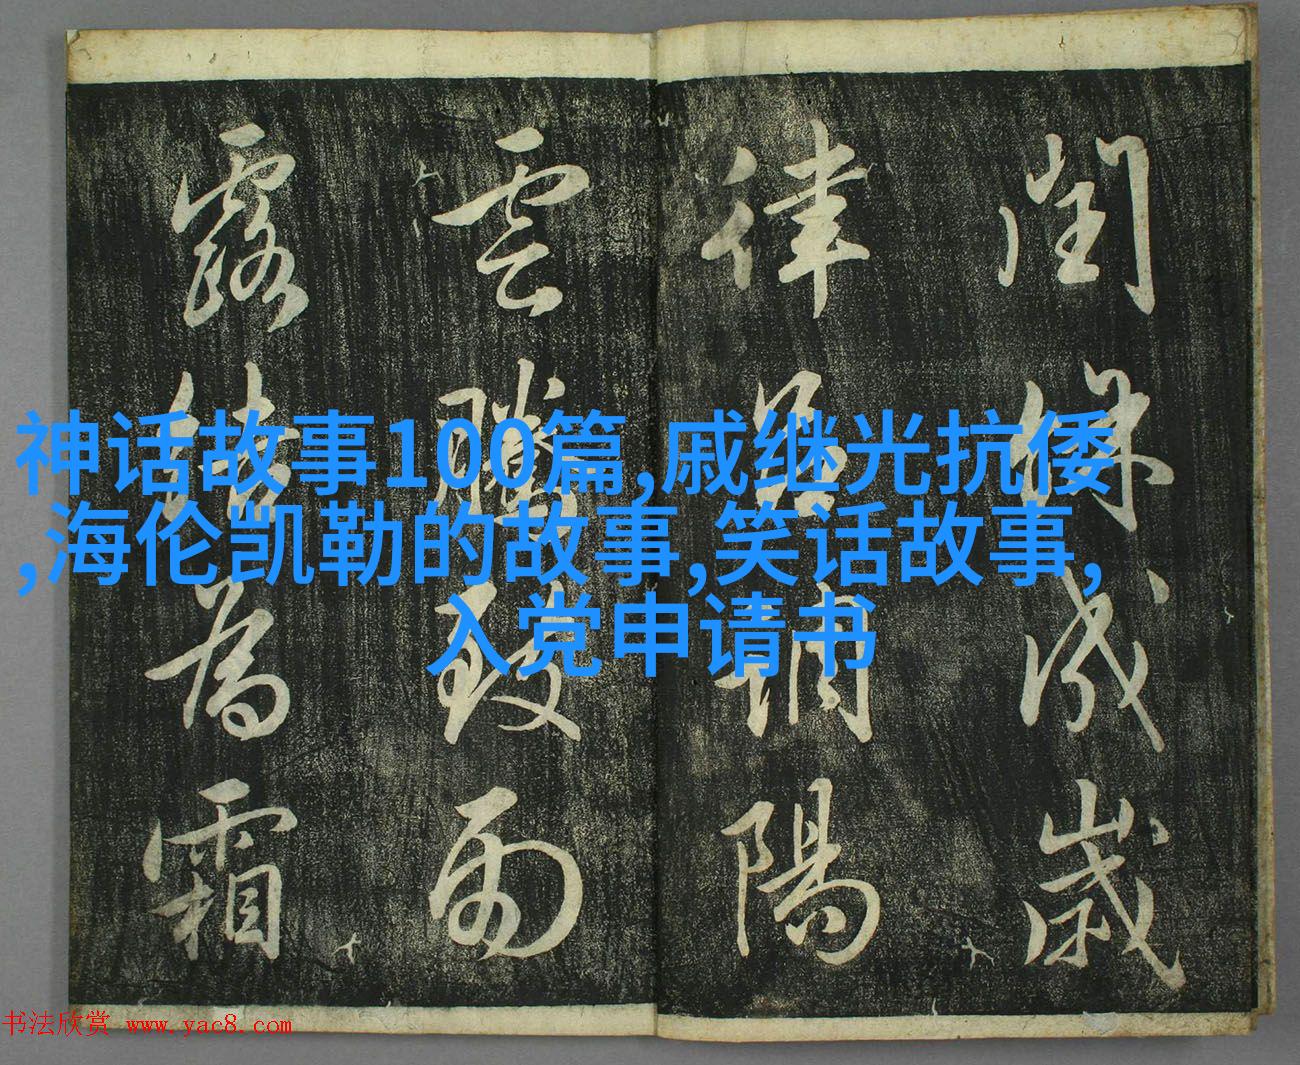 閏餘成歲
律呂調陽
雲騰致雨
露結為霜
神话故事100篇,戚继光抗倭
,海伦凯勒的故事,笑话故事,
入党申请书
书法欣赏 www.yac8.com